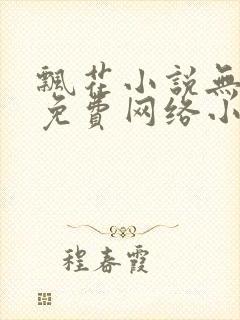 飄花小説無
免費网络小
程春霞